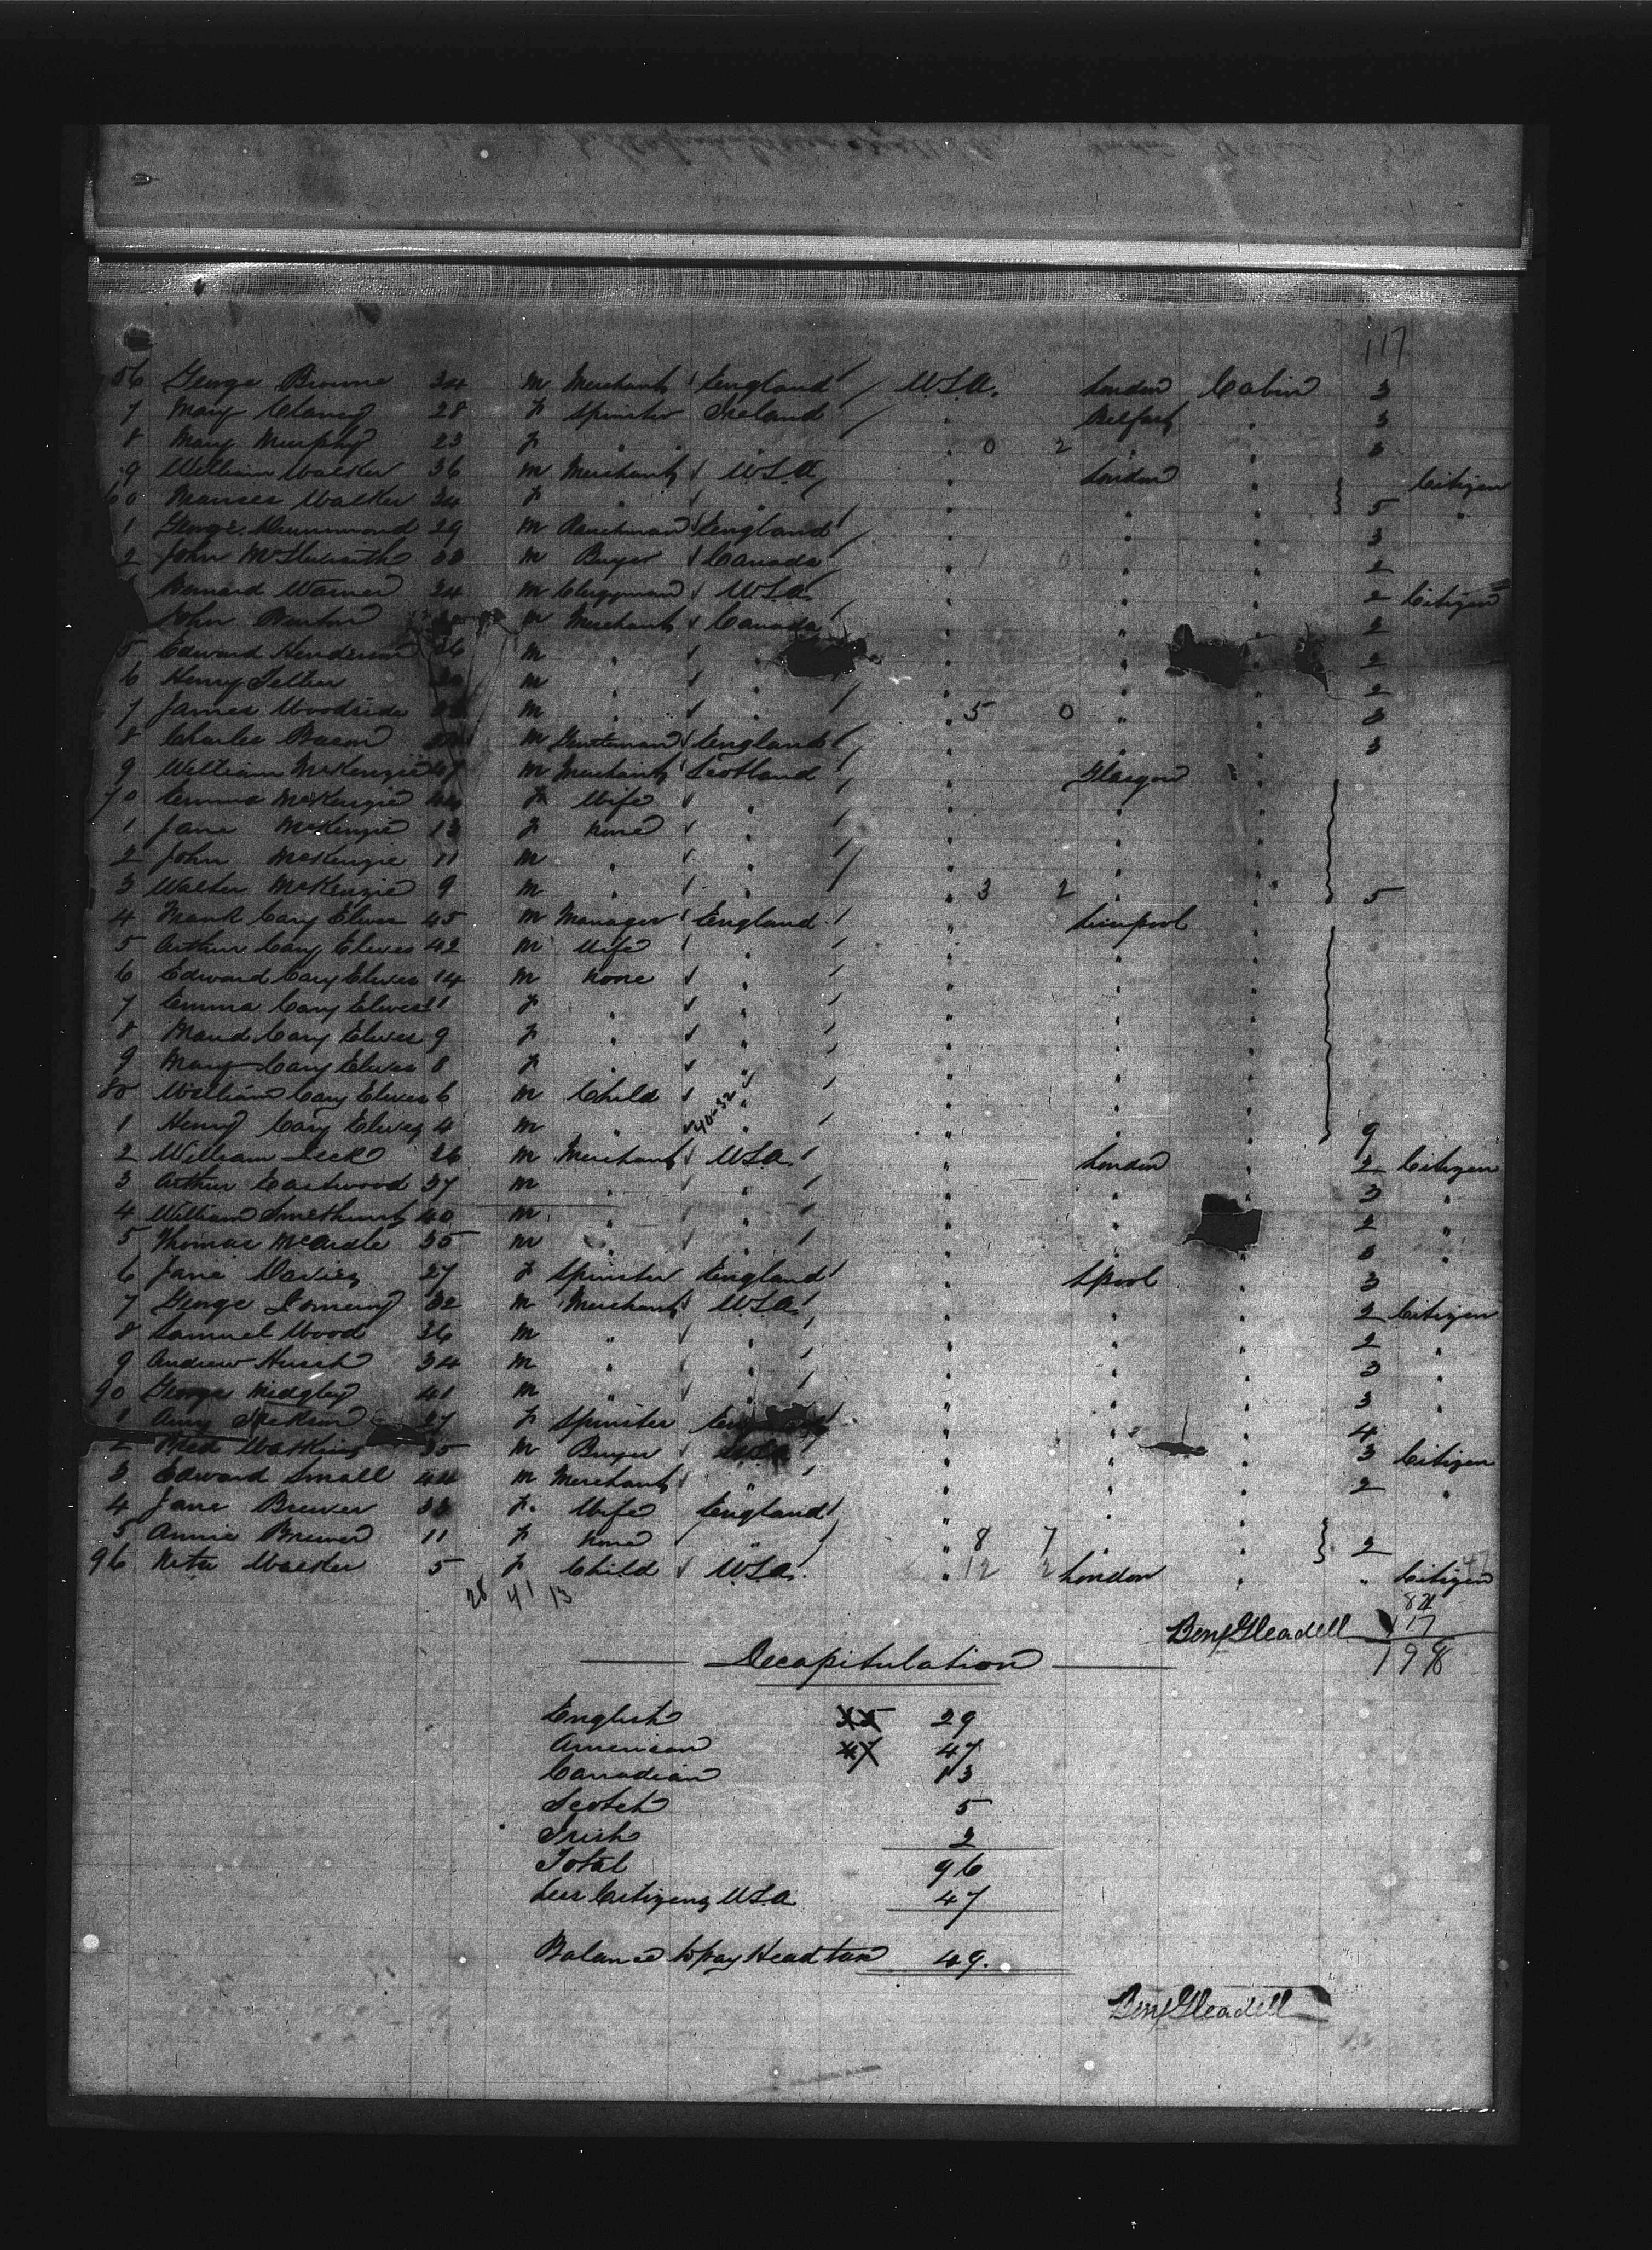 117
56 George Browne 34 M Merchant England U.S.A. London Cabin 3
7 Mary Clancy 28 F Spinster Ireland " Belfast " 3
8 Mary Murphy 23 F " " " 0 2 " " 3
9 William Walker 36 M Merchant U.S.A. " London " Citizen
60 Walker 34 F " " " " " 5 "
1 George Drummond 29 M Ranchman England " " " 3
2 John 33 M Buyer Canada " 1 0 " " 2
Bernard Warner 34 M Clergyman U.S.A. " " " 2 Citizen
John M Merchant Canada " " " 2
5 Edward Henderson 36 M " " " " 2
6 Henry M " " " 2
7 James Woodside M " " " 5 0 " " 3
8 Charles Bacon M Gentleman England " " " 3
9 William McKenzie M Merchant Scotland " Glasgow "
70 Emma McKenzie 44 F Wife " " " "
1 Jane McKenzie 13 F None " " " "
2 John McKenzie 11 M " " " " "
3 Walter McKenzie 9 M " " " 3 2 " " 5
4 Frank Cary Elwes 45 M Manager England " Liverpool "
5 Arthur Cary Elwes 42 M Wife " " " "
6 Edward Cary Elwes 14 M None " " " "
7 Emma Cary Elwes 11 F " " " " "
8 Maud Cary Elwes 9 F " " " " "
9 Mary Cary Elwes 8 F " " " " "
80 William Cary Elwes 6 M Child " " " "
1 Henry Cary Elwes 4 M " 40-32 " " " " 9
2 William 26 M Merchant U.S.A. " London " 2 Citizen
3 Arthur Eastwood 37 M " " " " " 3 "
4 William Smethurst 40 M " " " " 2 "
5 Thomas McArdle 35 M " " " " " 3 "
6 Jane Davies 27 F Spinster England " Lpool " 3
7 George 32 M Merchant U.S.A. " " " 2 Citizen
8 Samuel Wood 36 M " " " " " 2 "
9 Andrew Hirsch 34 M " " " " " 3 "
90 George Midgley 41 M " " " " " 3 "
1 Amy 27 F Spinster " " " 4
2 Fred Watkins 35 M Buyer U.S.A. " " 3 Citizen
3 Edward Small 44 M Merchant " " " " 2 "
4 Jane Brewer 33 F. Wife England " " "
5 Annie Brewer 11 F None " " 8 7 " " 2
96 Neta Walker 5 F Child U.S.A. " 12 2 London " " Citizen
28 41 13
82
Benj Gleadell 117
198
Recapitulation
English 29
American 47 47
Canadian 13
Scotch 5
Irish 2
Total 96
Less Citizens U.S.A 47
Balance to pay Head tax 49.
Benj Gleadell